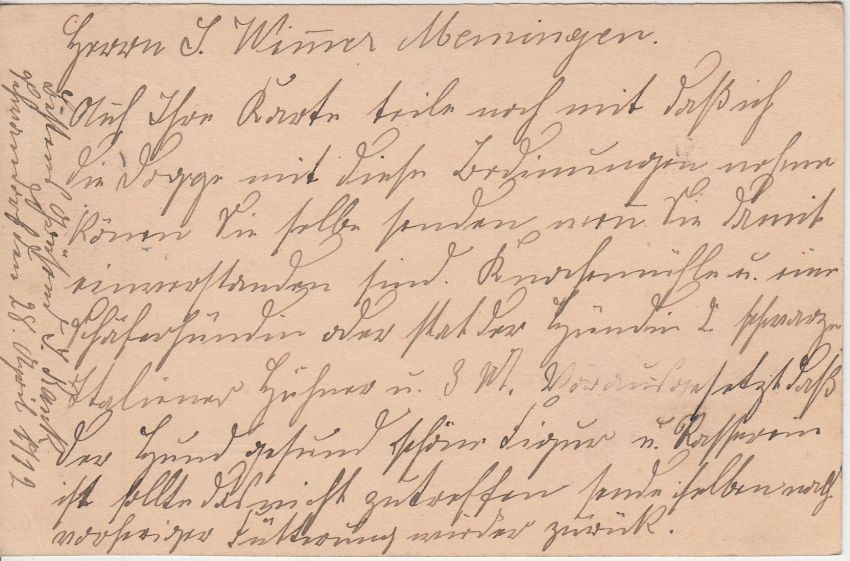 Herrn J. Wimmer Memingen.
Auf Ihre Karte teile noch mit daß ich
die Dogge mit diese Bedinungen nehme
könen Sie selbe senden wen Sie damit
einverstanden sind. Knochenmühle u. eine
Schäferhündin oder stat der Hündin 2 schwarze
Italiener Hühner u. 3 M. Vorausgesetzt daß
der Hund gesund schöne Figur u. Rasserein
ist sollte das nicht zutreffen sende selben nach
vorheriger Fütterung wieder zurück.
Achtend J.
den 28. April 1912